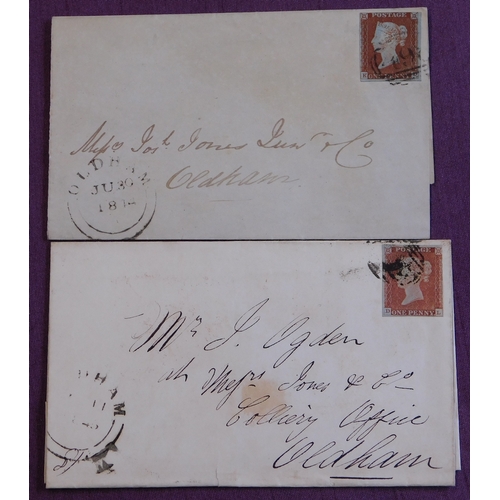 POSTAGE
ONE PENNY
Mess Jos. Jones Junr & Co
Oldham
OLDHAM
JU 30
POSTAGE
ONE PENNY
Mr J. Ogden
at Messrs Jones & Co
Colliery Office
Oldham
HAM